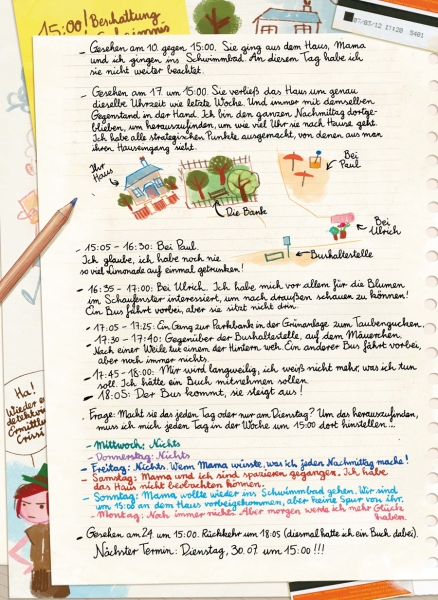 15:00! Beschattung
07/03/12 17:20 5401
- Gesehen am 10. gegen 15:00. Sie ging aus dem Haus, Mama
und ich gingen ins Schwimmbad. An diesem Tag habe ich
sie nicht weiter beachtet.
- Gesehen am 17. um 15:00. Sie verließ das Haus um genau
dieselbe Uhrzeit wie letzte Woche. Und immer mit demselben
Gegenstand in der Hand. Ich bin den ganzen Nachmittag dortge-
blieben, um herauszufinden, um wie viel Uhr sie nach Hause geht.
Ich habe alle strategischen Punkte ausgemacht, von denen aus man
ihren Hauseingang sieht.
Ihr
Haus
Die Bank
Bei
Paul
Bei
Ulrich
Bushaltestelle
- 15:05 - 16:30: Bei Paul.
Ich glaube, ich habe noch nie
so viel Limonade auf einmal getrunken!
- 16:35 - 17:00: Bei Ulrich. Ich habe mich vor allem für die Blumen
im Schaufenster interessiert, um nach draußen schauen zu können!
Ein Bus fährt vorbei, aber sie sitzt nicht drin.
- 17:05 - 17:25: Ein Gang zur Parkbank in der Grünanlage zum Taubengucken.
- 17:30 - 17:40: Gegenüber der Bushaltestelle, auf dem Mäuerchen.
Nach einer Weile tut einem der Hintern weh. Ein anderer Bus fährt vorbei,
aber noch immer nichts.
- 17:45 - 18:00: Mir wird langweilig, ich weiß nicht mehr, was ich tun
soll. Ich hätte ein Buch mitnehmen sollen
- 18:05: Der Bus kommt, sie steigt aus!
Frage: Macht sie das jeden Tag oder nur am Dienstag? Um das herauszufinden,
muss ich mich jeden Tag in der Woche um 15:00 dort hinstellen...
- Mittwoch: Nichts
- Donnerstag: Nichts
- Freitag: Nichts. Wenn Mama wüsste, was ich jeden Nachmittag mache!
- Samstag: Mama und ich sind spazieren gegangen. Ich habe
das Haus nicht beobachten können.
- Sonntag: Mama wollte wieder ins Schwimmbad gehen. Wir sind
um 15:00 an dem Haus vorbeigekommen, aber keine Spur von ihr.
- Montag: Noch immer nichts. Aber morgen werde ich mehr Glück
haben.
- Gesehen am 24. um 15:00. Rückkehr um 18:05 (diesmal hatte ich ein Buch dabei).
Nächster Termin: Dienstag, 30.07. um 15:00!!!
Ha!
Wieder